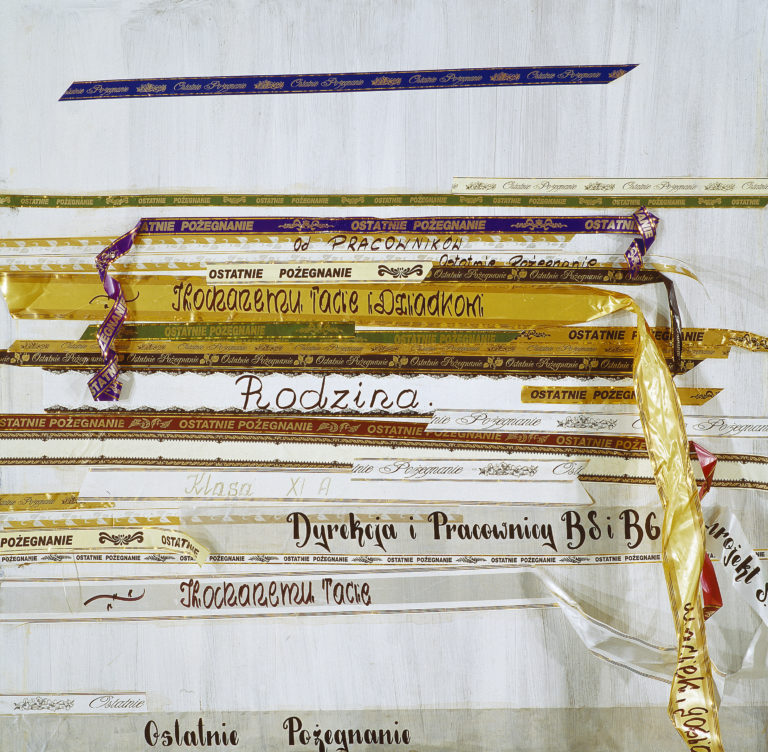 Ostatnie Pożegnanie Ostatnie Pożegnanie Ostatnie Pożegnanie Ostatnie Pożegnanie Ostatnie Pożegnanie
Ostatnie Pożegnanie Ostatnie Pożegnanie Ostatnie
OSTATNIE POŻEGNANIE OSTATNIE POŻEGNANIE OSTATNIE POŻEGNANIE OSTATNIE POŻEGNANIE OSTATNIE POŻEGNANIE
TNIE POŻEGNANIE OSTATNIE POŻEGNANIE OSTATNI
Od PRACOWNIKÓW
Ostatnie Pożegnanie
OSTATNIE POŻEGNANIE OSTATNIE POŻEGNANIE OSTATNIE POŻEGNANIE
Kochanemu Tacie i Dziadkowi
OSTATNIE POŻEGNANIE
OSTATNIE POŻEGNANIE
OSTATNIE POŻEGNANIE
Ostatnie Pożegnanie Ostatnie Pożegnanie Ostatnie Pożegnanie Ostatnie Pożegnanie Ostatnie Pożegnanie Ostatnie Pożegnanie
Rodzina.
OSTATNIE POŻEGN
OSTATNIE POŻEGNANIE OSTATNIE POŻEGNANIE OSTATNIE POŻEGNANIE OSTATNIE POŻE
nie Pożegnanie Ostatnie Pożegnanie
nie Pożegnanie Ost
Klasa XI A
Dyrekcja i Pracownicy B5 i B6
POŻEGNANIE OSTATNIE
OSTATNIE POŻEGNANIE OSTATNIE POŻEGNANIE OSTATNIE POŻEGNANIE OSTATNIE POŻEGNANIE
Kochanemu Tacie
Ostatnie
Ostatnie Pożegnanie